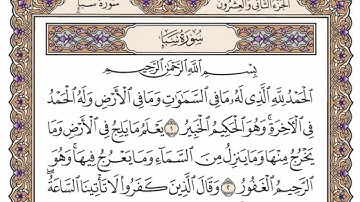 الجزء الثاني والعشرون سورة سبإ
سُورَةُ سَبَإٍ
بِسْمِ اللَّهِ الرَّحْمَٰنِ الرَّحِيمِ
الْحَمْدُ لِلَّهِ الَّذِي لَهُ مَا فِي السَّمَاوَاتِ وَمَا فِي الْأَرْضِ وَلَهُ الْحَمْدُ
فِي الْآخِرَةِ وَهُوَ الْحَكِيمُ الْخَبِيرُ ١ يَعْلَمُ مَا يَلِجُ فِي الْأَرْضِ وَمَا
يَخْرُجُ مِنْهَا وَمَا يَنزِلُ مِنَ السَّمَاءِ وَمَا يَعْرُجُ فِيهَا وَهُوَ
الرَّحِيمُ الْغَفُورُ ٢ وَقَالَ الَّذِينَ كَفَرُوا لَا تَأْتِينَا السَّاعَةُ